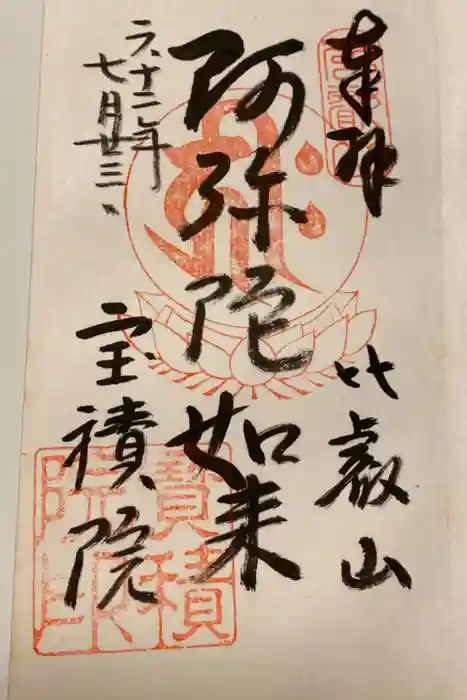 奉拝
比叡山
阿弥陀如来
六十二年
七月廿三日
宝積院
寶積
院印